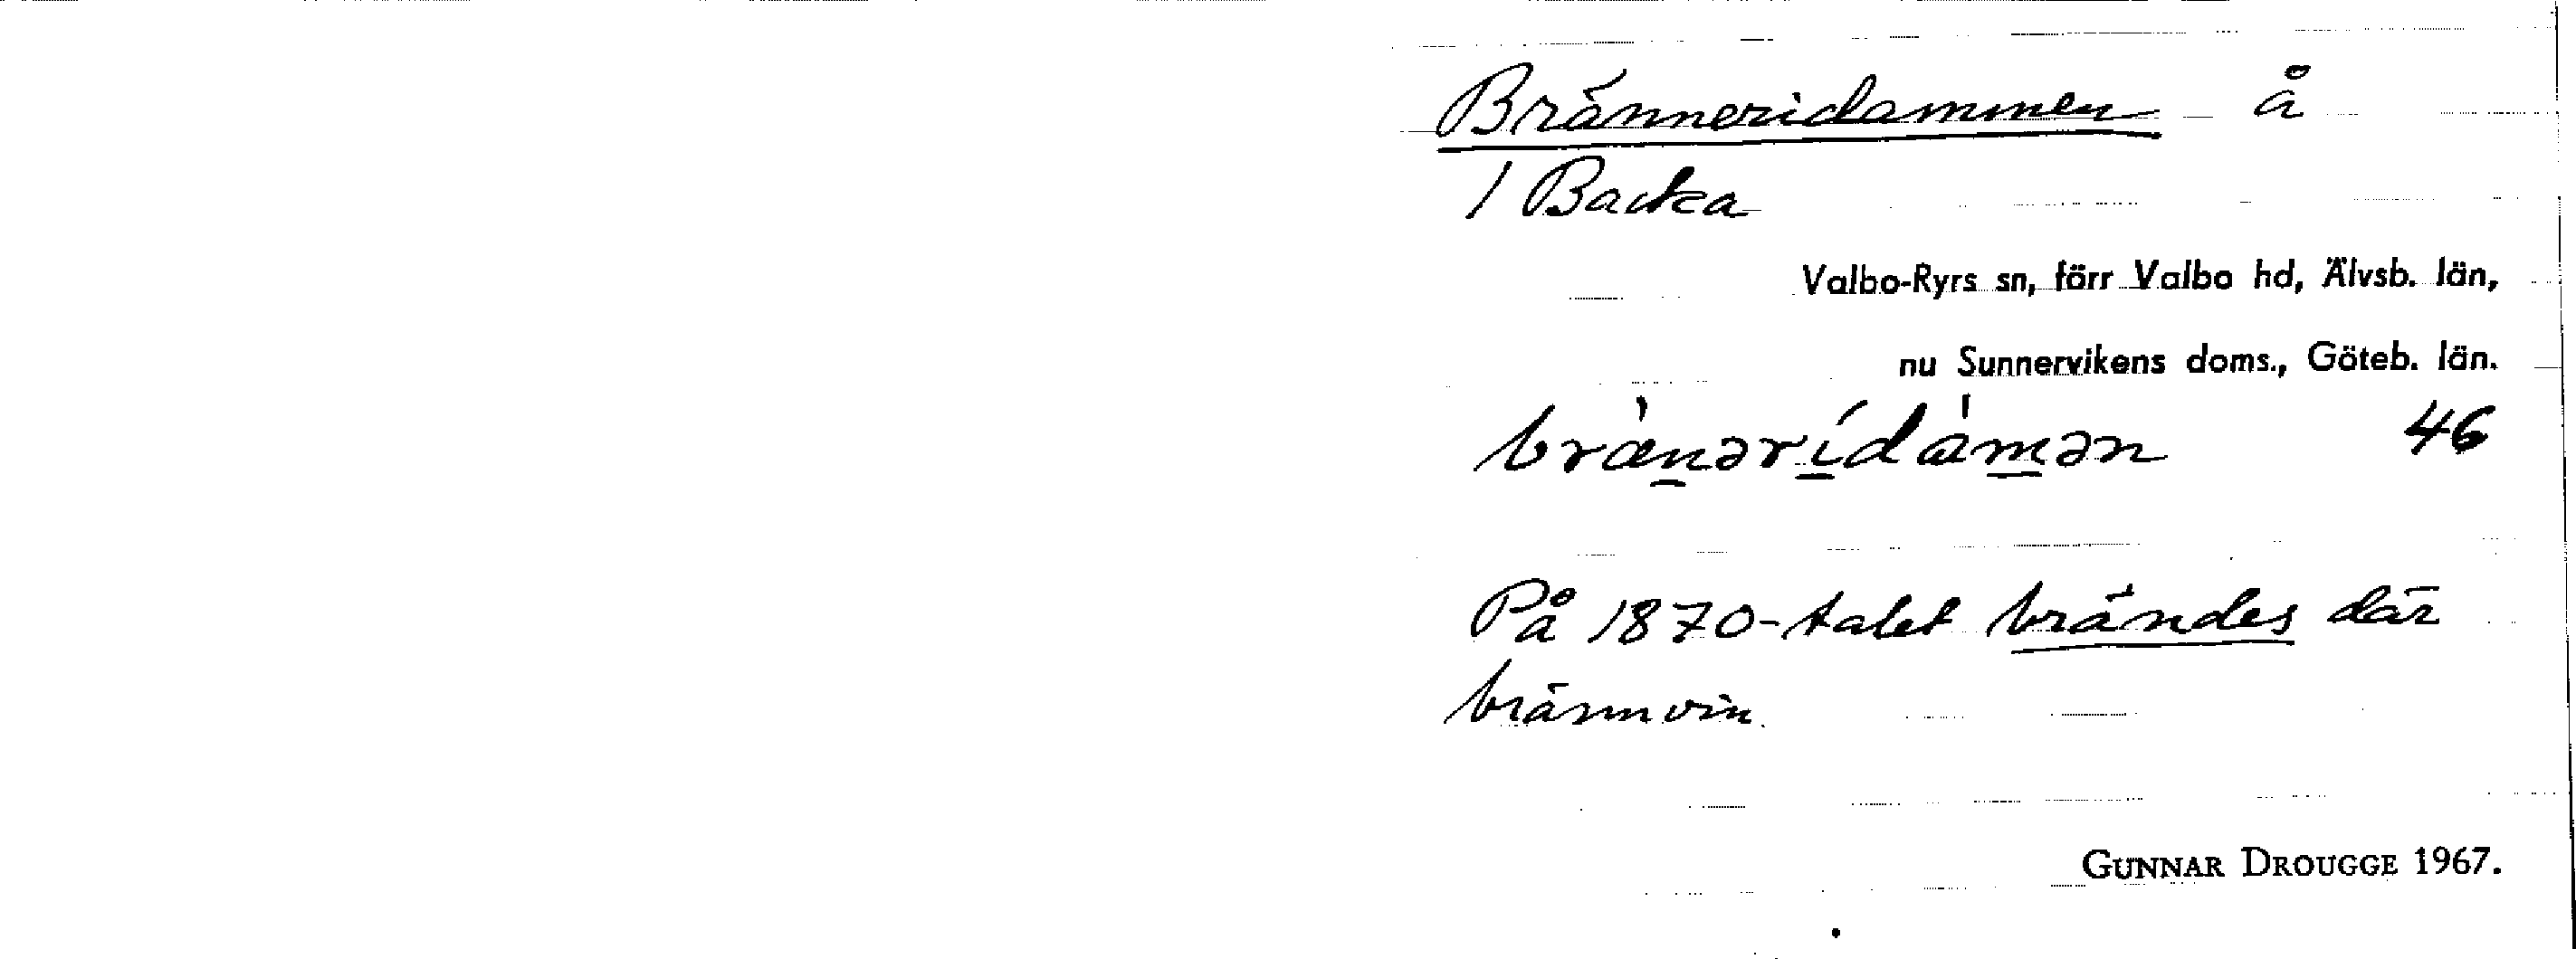 Bränneridammen å
1 Backa
Valbo-Ryrs sn, förr Valbo hd, Älvsb. län,
nu Sunnervikens doms., Göteb. län.
bræ̀nərídàmən 46
På 1870-talet brändes där
brännvin.
GUNNAR DROUGGE 1967.